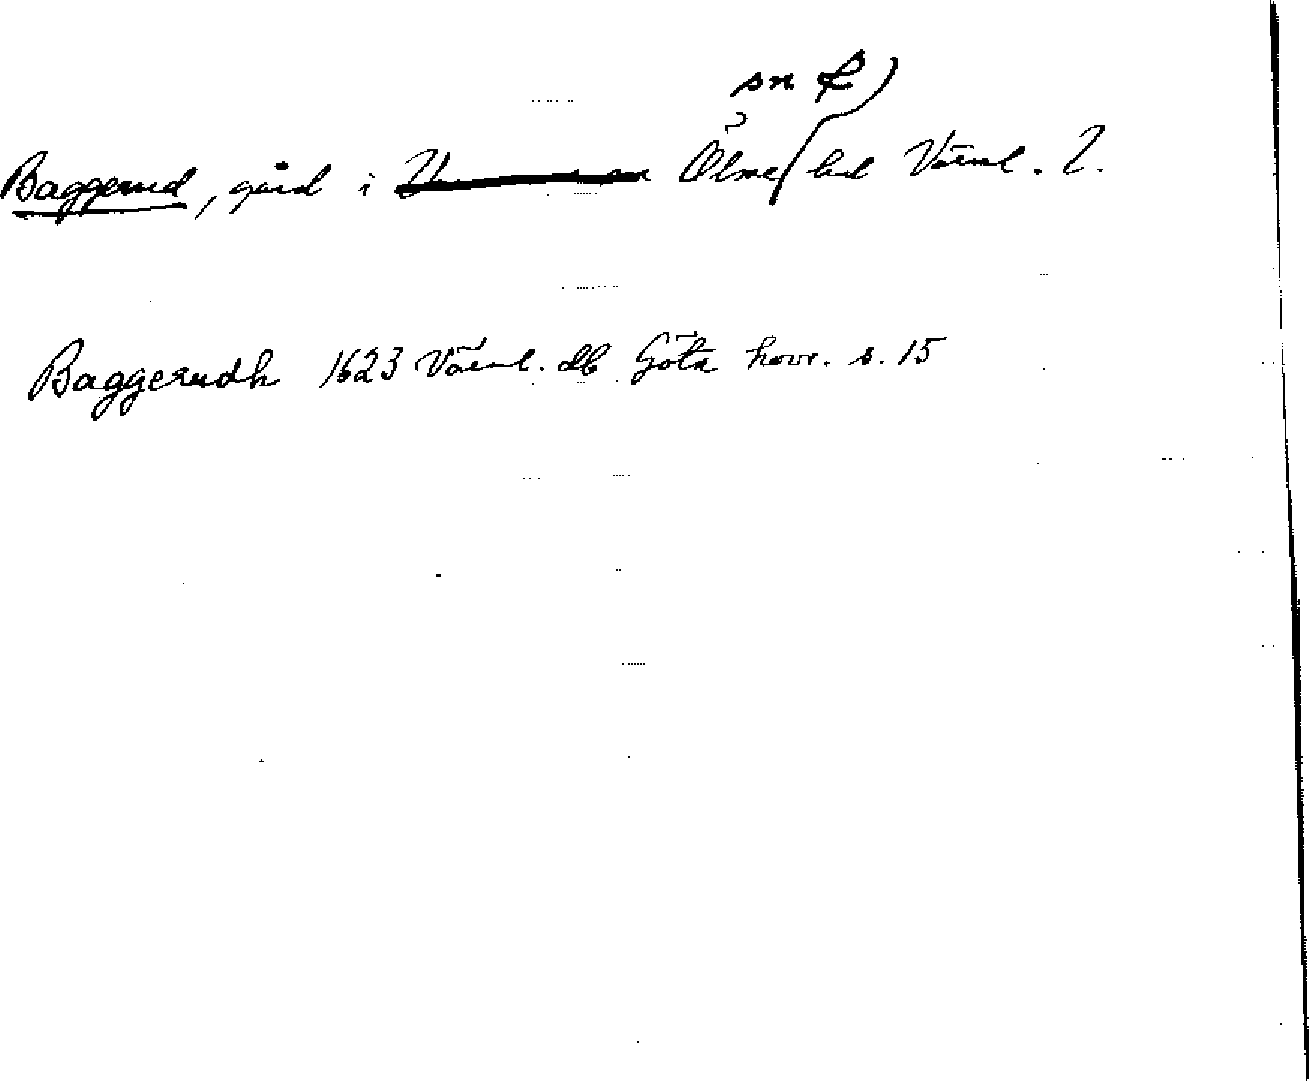 Baggerud, gård i Ölme sn &) hd Värml. l.
Baggerudh 1623 Värml. db Göta hovr. s. 15